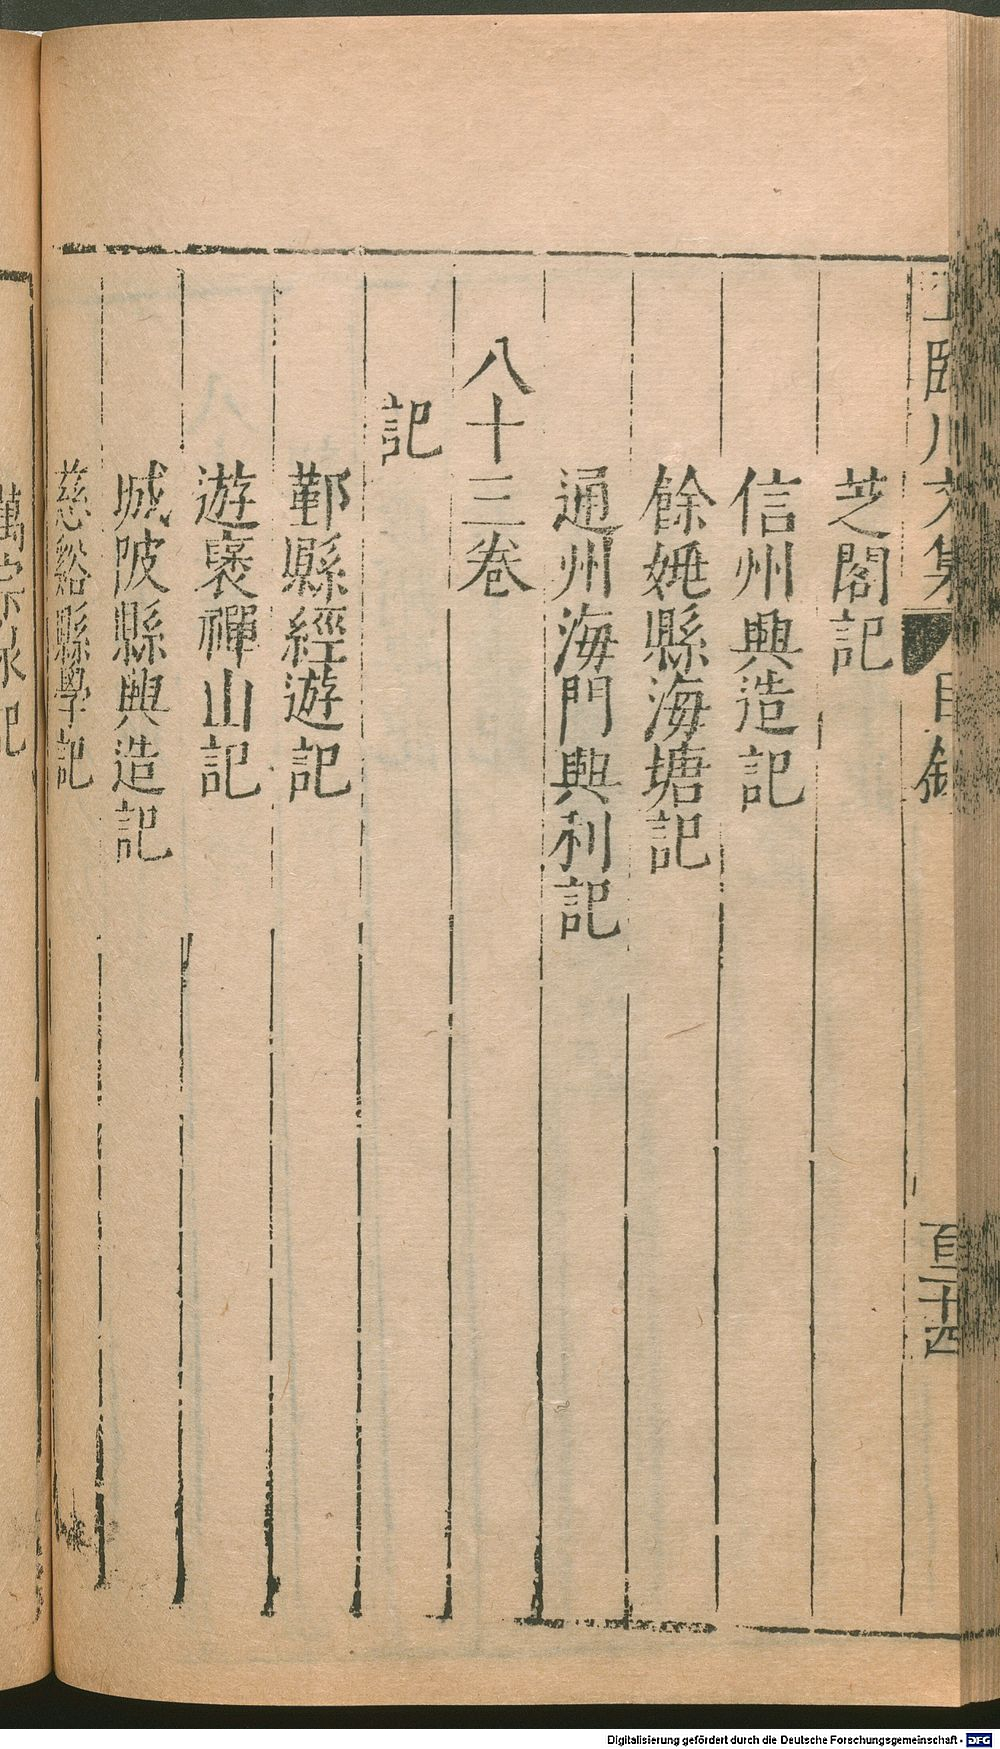 王臨川文集 目錄 百三十四
芝閣記
信州興造記
餘姚縣海塘記
通州海門興利記
八十三卷
記
鄞縣經遊記
遊褒禪山記
城陂縣興造記
慈谿縣學記
萬宗泉記
Digitalisierung gefördert durch die Deutsche Forschungsgemeinschaft - DFG